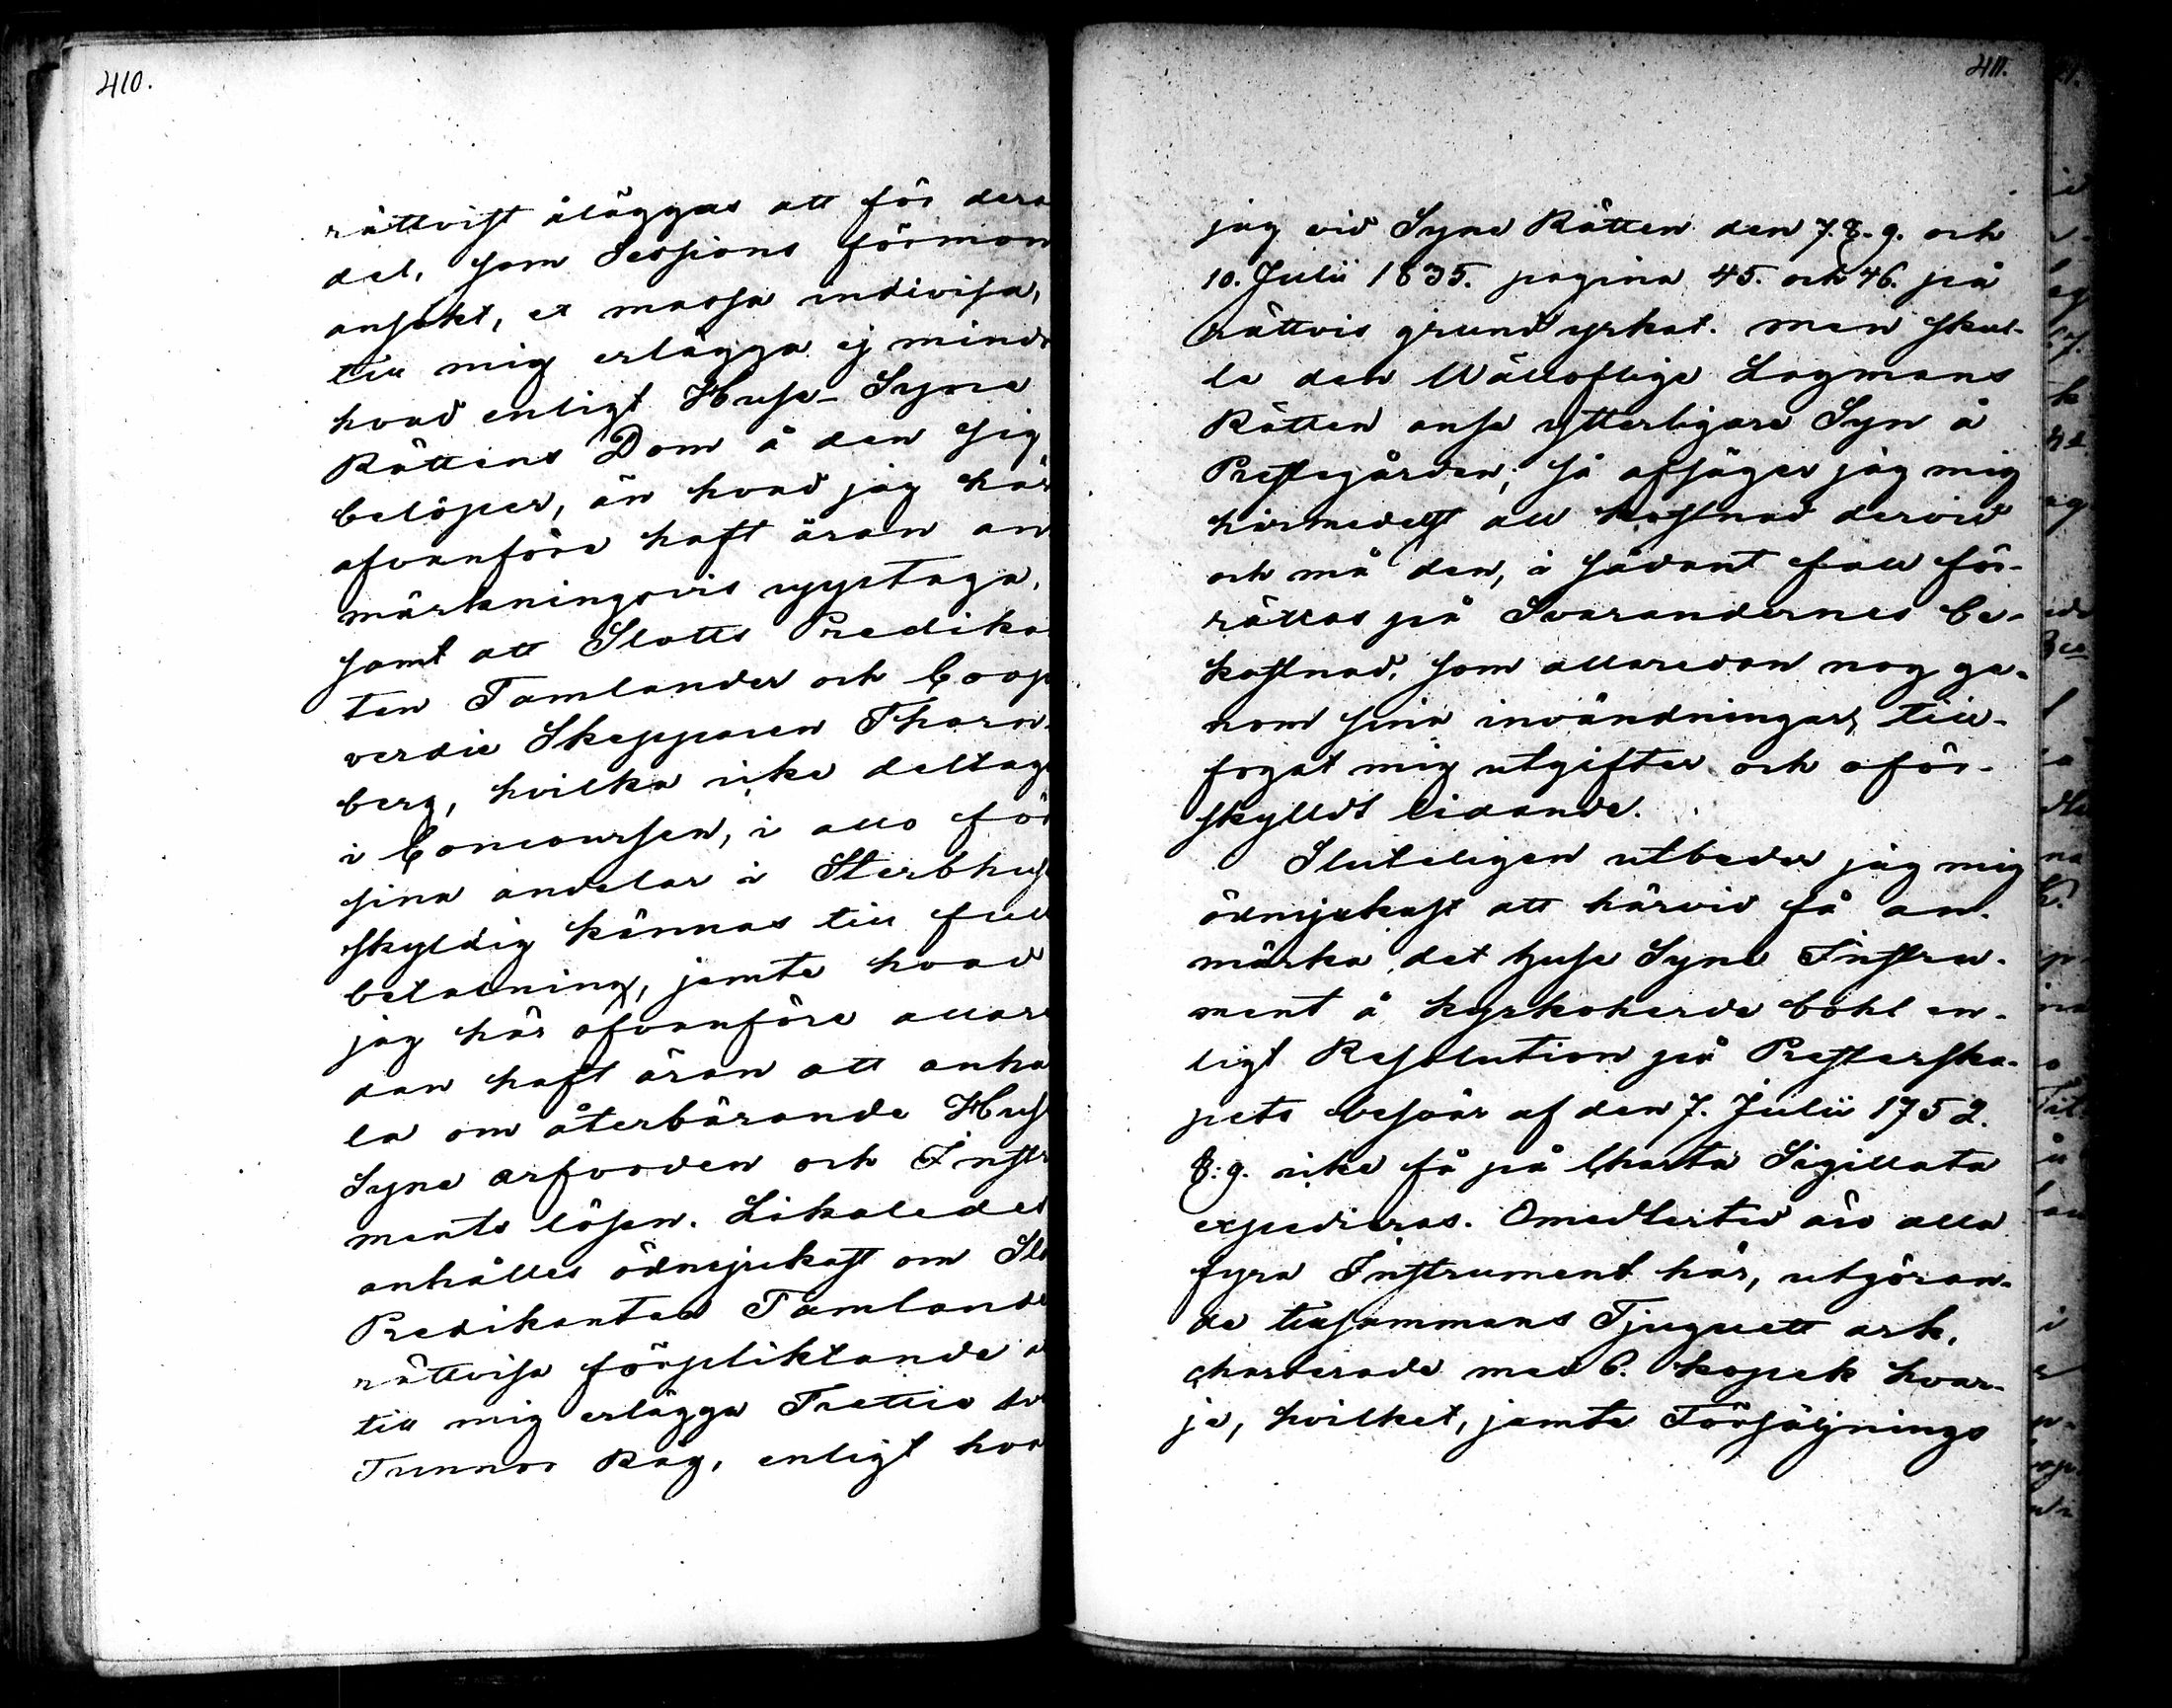 410.
rättvist åläggas att för dera
del, som Sessions förmon
ansökt, ex massa indivisa,
till mig erlägga ej mindr
hvad enligt Huse-Syne
Rättens Dom å den sig
belöper, än hvad jag här
ofvanföre haft äran an
märkningsvis upptaga,
samt att Slotts Predika
ten Tamlander och Coop
verdie Skepparen Thorn
berg, hvilka icke deltag
i Concoursen, i allo för
sina andelar i Sterbhus
skyldig kännas till full
betalning, jemte hvad
jag här ofvanföre allare
dan haft äran att anhå
la om återbärande Huse
Syne arfvoden och Instr
ments lösen. Likaledes
anhålles ödmjukast om Slo
Predikanten Tamlande
rättvisa förpliktande a
till mig erlägga Trettio
Tunnor Råg, enligt hva
411.
jag vid Syne Rätten den 7. 8. 9. och
10. Julii 1835. pagina 45. och 46. på
rättvis grund yrkat. men skul-
le den Wällofliga Lagmans
Rätten anse ytterligare Syn å
Prestegården, så afsäger jag mig
härmedelst all kostnad dervid
och må den, i sådant fall för-
rättas på Svarandernes be-
kostnad, som allaredan nog ge-
nom sina invändningar, till-
fogat mig utgifter och oför-
skylldt lidande.
Sluteligen utbeder jag mig
ödmjukast att härvid få an-
märka, det huse Syne Instru-
ment å kyrkoherde bohl en-
ligt Resolution på Presterska-
pets besvär af den 7. Julii 1752.
§: 9. icke få på Charta Sigillata
expedieras. Omedlertid äro alla
fyra Instrument här, utgöran-
de tillsammans Tjuguett ark,
charterade med 6. kopek hvar-
je, hvilket, jemte Försäljnings